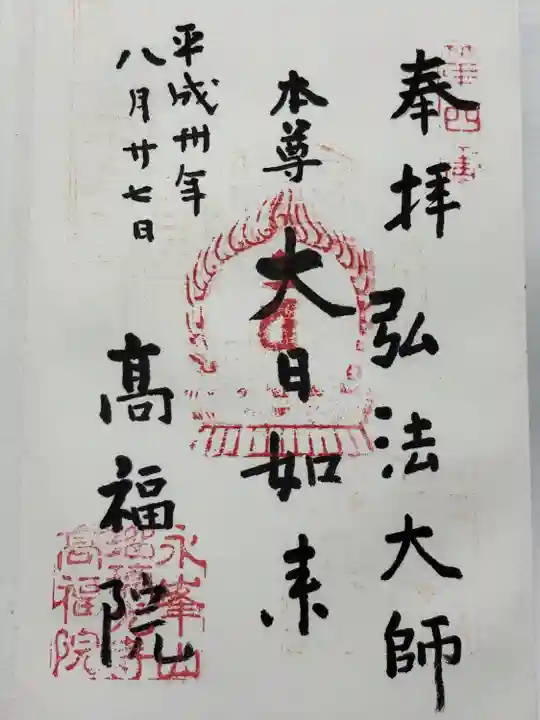 奉拝 弘法大師
本尊 大日如来
平成卅年
八月廿七日
高福院
永峯山
高福院